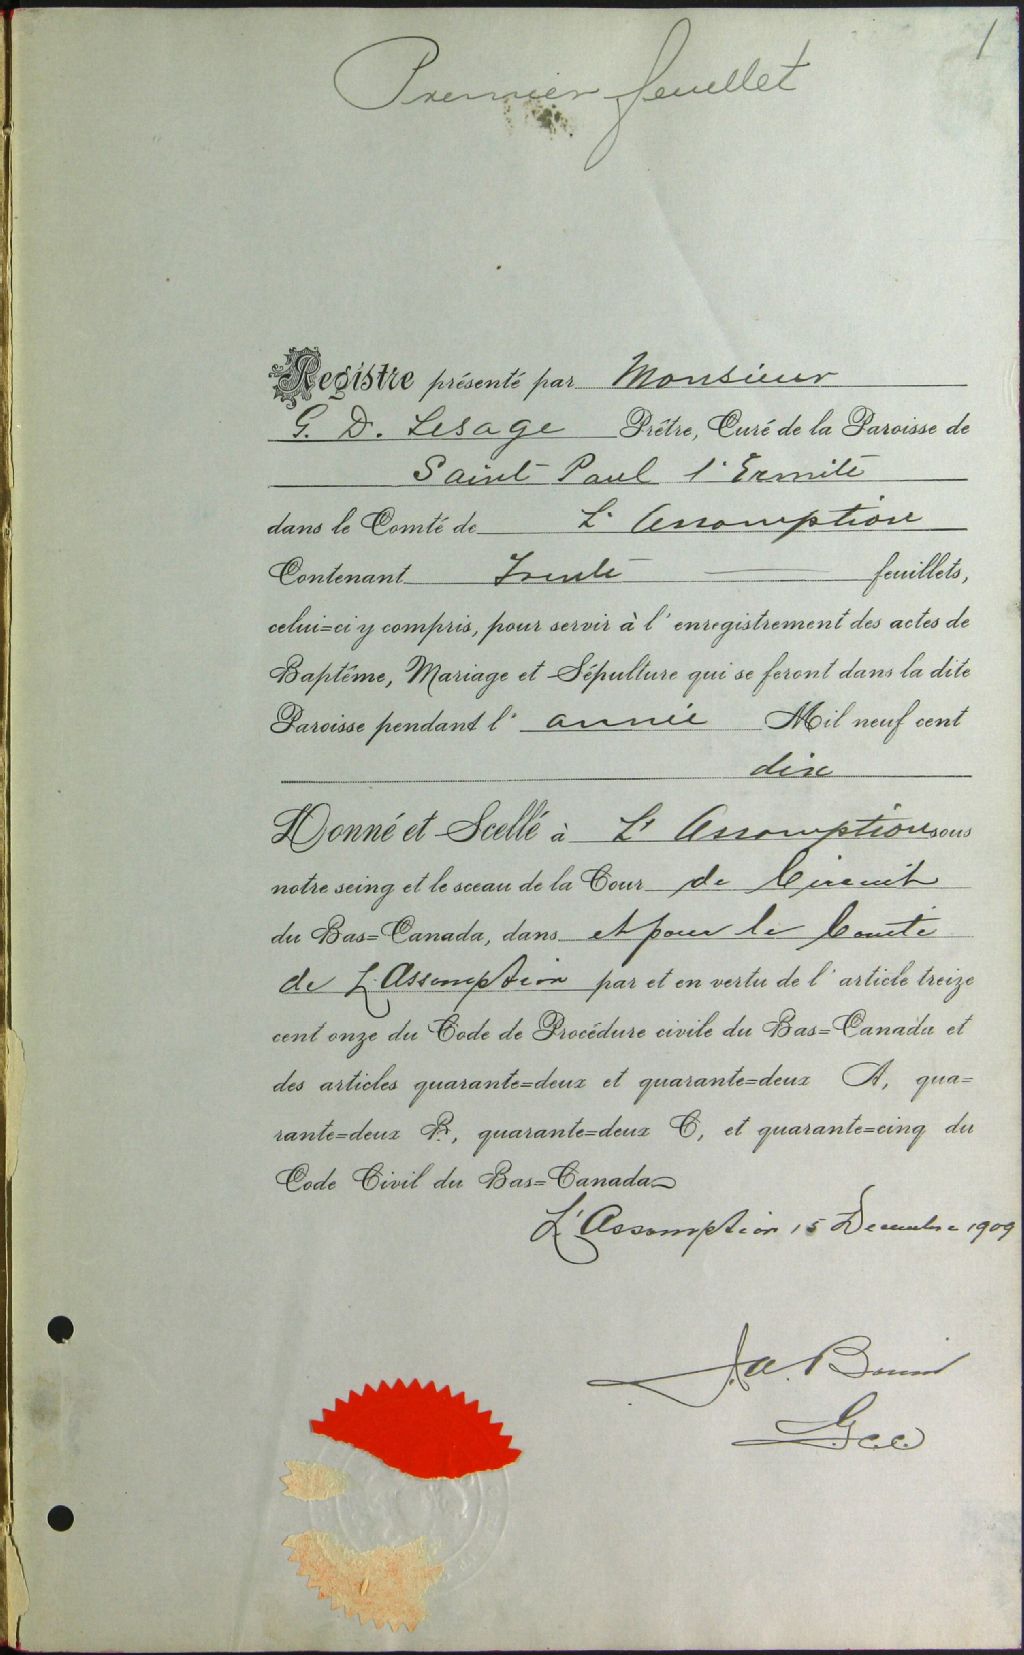 1
Premier feuillet
Registre présenté par Monsieur
G. D. Lesage Prêtre, Curé de la Paroisse de
Saint Paul l'Ermite
dans le Comté de L'Assomption
Contenant Trente feuillets,
celui=ci y compris, pour servir à l'enregistrement des actes de
Baptême, Mariage et Sépulture qui se feront dans la dite
Paroisse pendant l'année Mil neuf cent
dix
Donné et Scellé à L'Assomption sous
notre seing et le sceau de la Cour de Circuit
du Bas=Canada, dans et pour le Comté
de L'Assomption par et en vertu de l'article treize
cent onze du Code de Procédure civile du Bas=Canada et
des articles quarante=deux et quarante=deux A, qua=
rante=deux B, quarante=deux C, et quarante=cinq du
Code Civil du Bas=Canada
L'Assomption 15 Decembre 1909
J. A.
G.c.c.